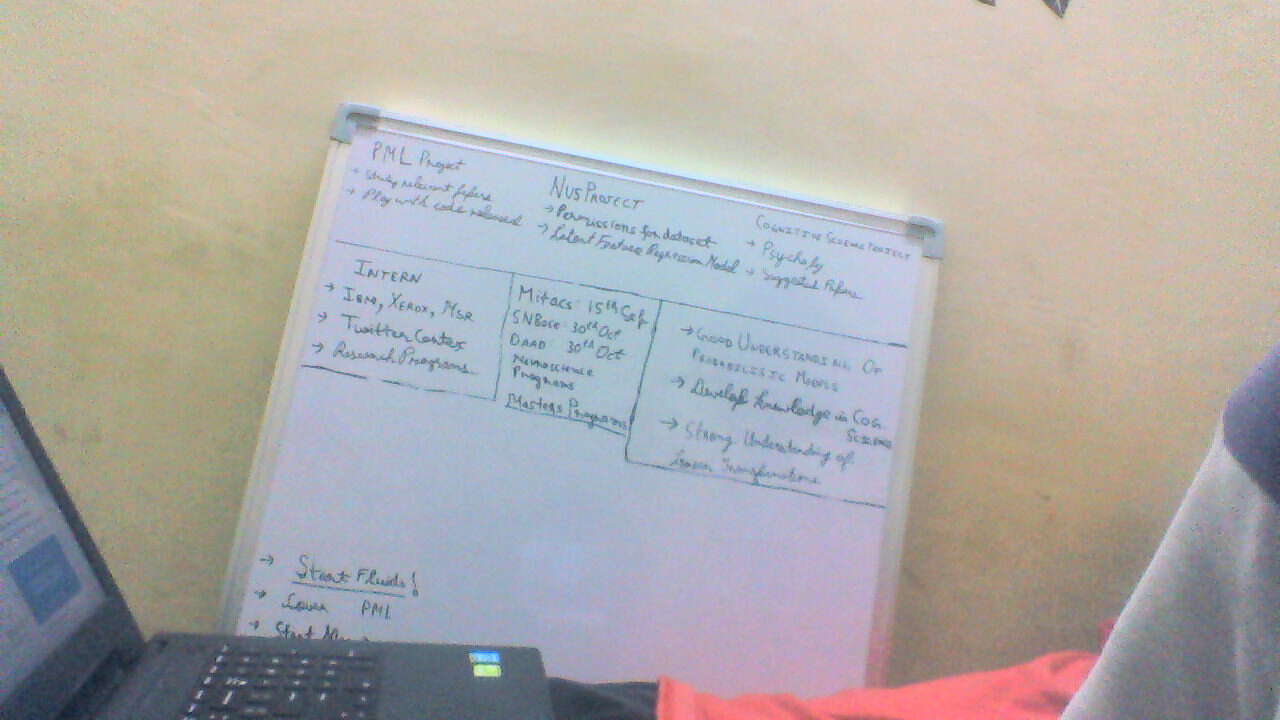 PML Project
→ Study relevant papers
→ Play with code released
NUS PROJECT
→ Permissions for dataset
→ Latent Feature Regression Model
COGNITIVE SCIENCE PROJECT
→ Psychopy
→ Suggested Papers
INTERN
→ IBM, XEROX, MSR
→ Twitter Cortex
→ Research Programs
Mitacs: 15th Sep
SNBose: 30th Oct
DAAD: 30th Oct
Neuroscience
Programs
Masters Programs
→ GOOD UNDERSTANDING OF
PROBABILISTIC MODELS
→ Develop knowledge in COG.
SCIENCE
→ Strong Understanding of
Linear Transformations
→ Start Fluids!
→ PML
→ Start